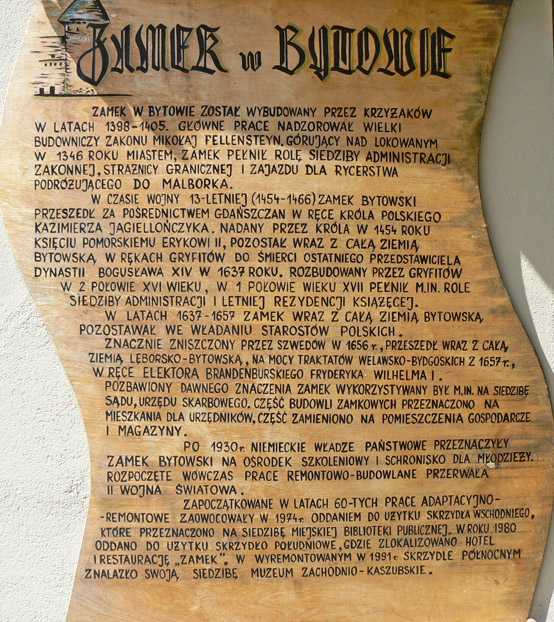 ZAMEK w BYTOWIE
ZAMEK W BYTOWIE ZOSTAŁ WYBUDOWANY PRZEZ KRZYŻAKÓW
W LATACH 1398-1405. GŁÓWNE PRACE NADZOROWAŁ WIELKI
BUDOWNICZY ZAKONU MIKOŁAJ FELLENSTEYN, GÓRUJĄCY NAD LOKOWANYM
W 1346 ROKU MIASTEM, ZAMEK PEŁNIŁ ROLĘ SIEDZIBY ADMINISTRACJI
ZAKONNEJ, STRAŻNICY GRANICZNEJ I ZAJAZDU DLA RYCERSTWA
PODRÓŻUJĄCEGO DO MALBORKA.
W CZASIE WOJNY 13-LETNIEJ (1454-1466) ZAMEK BYTOWSKI
PRZESZEDŁ ZA POŚREDNICTWEM GDAŃSZCZAN W RĘCE KRÓLA POLSKIEGO
KAZIMIERZA JAGIELLOŃCZYKA. NADANY PRZEZ KRÓLA W 1454 ROKU
KSIĘCIU POMORSKIEMU ERYKOWI II, POZOSTAŁ WRAZ Z CAŁĄ ZIEMIĄ
BYTOWSKĄ, W RĘKACH GRYFITÓW DO ŚMIERCI OSTATNIEGO PRZEDSTAWICIELA
DYNASTII BOGUSŁAWA XIV W 1637 ROKU. ROZBUDOWANY PRZEZ GRYFITÓW
W 2 POŁOWIE XVI WIEKU, W 1 POŁOWIE WIEKU XVII PEŁNIŁ M.IN. ROLE
SIEDZIBY ADMINISTRACJI I LETNIEJ REZYDENCJI KSIĄŻĘCEJ.
W LATACH 1637-1657 ZAMEK WRAZ Z CAŁĄ ZIEMIĄ BYTOWSKĄ
POZOSTAWAŁ WE WŁADANIU STAROSTÓW POLSKICH.
ZNACZNIE ZNISZCZONY PRZEZ SZWEDÓW W 1656 r., PRZESZEDŁ WRAZ Z CAŁĄ
ZIEMIĄ LĘBORSKO-BYTOWSKĄ, NA MOCY TRAKTATÓW WELAWSKO-BYDGOSKICH Z 1657 r.,
W RĘCE ELEKTORA BRANDENBURSKIEGO FRYDERYKA WILHELMA I.
POZBAWIONY DAWNEGO ZNACZENIA ZAMEK WYKORZYSTYWANY BYŁ M.IN. NA SIEDZIBĘ
SĄDU, URZĘDU SKARBOWEGO. CZĘŚĆ BUDOWLI ZAMKOWYCH PRZEZNACZONO NA
MIESZKANIA DLA URZĘDNIKÓW, CZĘŚĆ ZAMIENIONO NA POMIESZCZENIA GOSPODARCZE
I MAGAZYNY.
PO 1930 r. NIEMIECKIE WŁADZE PAŃSTWOWE PRZEZNACZYŁY
ZAMEK BYTOWSKI NA OŚRODEK SZKOLENIOWY I SCHRONISKO DLA MŁODZIEŻY.
ROZPOCZĘTE WÓWCZAS PRACE REMONTOWO-BUDOWLANE PRZERWAŁA
II WOJNA ŚWIATOWA.
ZAPOCZĄTKOWANE W LATACH 60-TYCH PRACE ADAPTACYJNO-
-REMONTOWE ZAOWOCOWAŁY W 1974 r. ODDANIEM DO UŻYTKU SKRZYDŁA WSCHODNIEGO,
KTÓRE PRZEZNACZONO NA SIEDZIBĘ MIEJSKIEJ BIBLIOTEKI PUBLICZNEJ. W ROKU 1980
ODDANO DO UŻYTKU SKRZYDŁO POŁUDNIOWE, GDZIE ZLOKALIZOWANO HOTEL
I RESTAURACJĘ „ZAMEK". W WYREMONTOWANYM W 1991 r. SKRZYDLE PÓŁNOCNYM
ZNALAZŁO SWOJĄ SIEDZIBĘ MUZEUM ZACHODNIO-KASZUBSKIE.